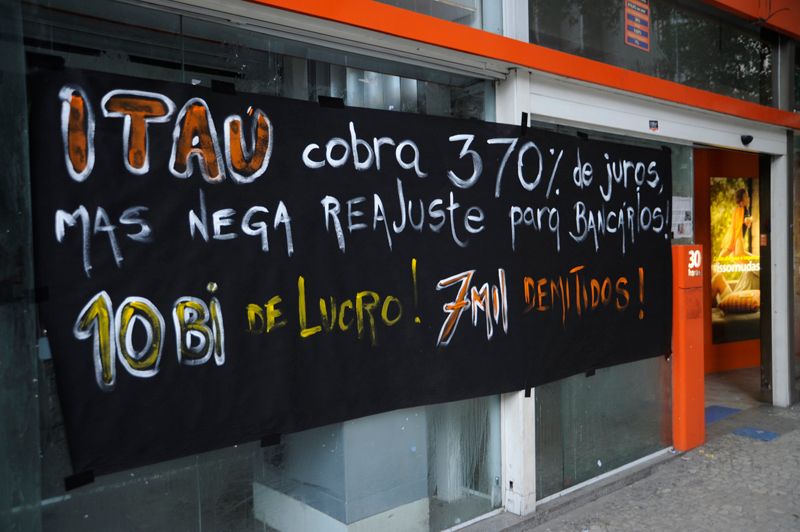 ITAÚ cobra 370% de juros,
MAS NEGA REAJuste para BANCÁRIOS!
10 Bi DE LUCRO! 7 Mil DEMITIDOS!
30
horas
issomudas